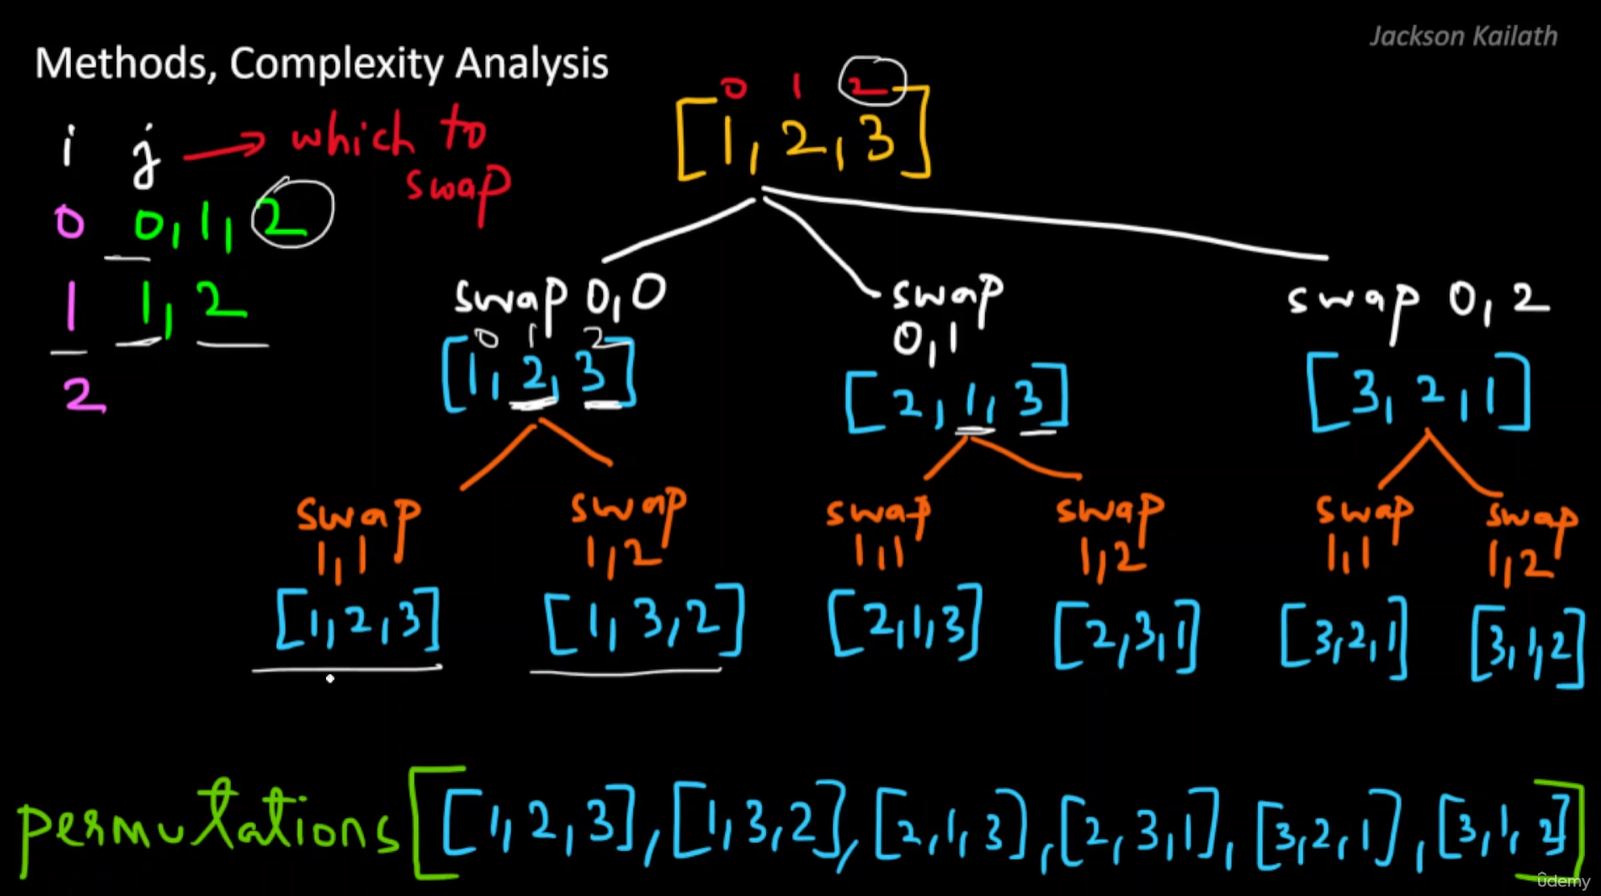 Jackson Kailath
Methods, Complexity Analysis
0 1 2
[1, 2, 3]
i j → which to swap
0 0, 1, 2
1 1, 2
2
swap 0,0
0 1 2
[1, 2, 3]
swap
0,1
[2, 1, 3]
swap 0, 2
[3, 2, 1]
swap
1,1
[1, 2, 3]
swap
1,2
[1, 3, 2]
swap
1,1
[2, 1, 3]
swap
1,2
[2, 3, 1]
swap
1,1
[3, 2, 1]
swap
1,2
[3, 1, 2]
permutations [[1, 2, 3], [1, 3, 2], [2, 1, 3], [2, 3, 1], [3, 2, 1], [3, 1, 2]]
ûdemy